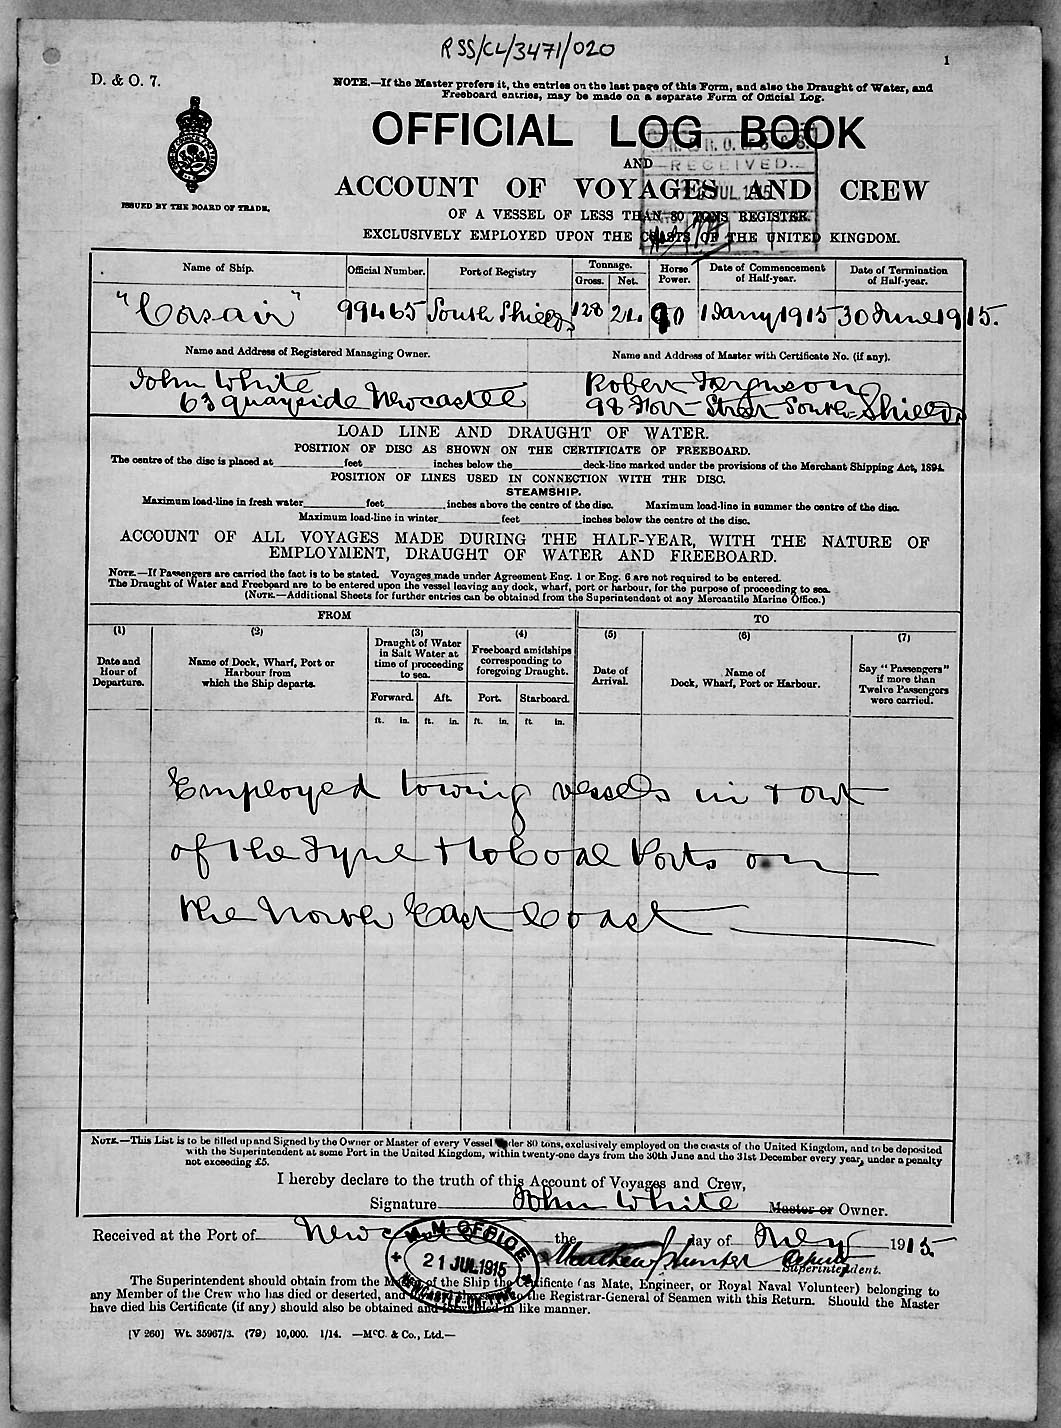 RSS/CL/3471/020
1
D. & O. 7.
NOTE.—If the Master prefers it, the entries on the last page of this Form, and also the Draught of Water, and
Freeboard entries, may be made on a separate Form of Official Log.
OFFICIAL LOG BOOK
AND
RECEIVED
ACCOUNT OF VOYAGES AND CREW
JUL. 1915
ISSUED BY THE BOARD OF TRADE.
OF A VESSEL OF LESS THAN 80 TONS REGISTER
EXCLUSIVELY EMPLOYED UPON THE COASTS OF THE UNITED KINGDOM.
Name of Ship. Official Number. Port of Registry Tonnage. Horse Power. Date of Commencement of Half-year. Date of Termination of Half-year.
Gross. Net.
"Corsair" 99465 South Shields 128 24 90 1 Jany 1915 30 June 1915.
Name and Address of Registered Managing Owner. Name and Address of Master with Certificate No. (if any).
John White Robert Ferguson
63 Quayside Newcastle 98 Street South Shields
LOAD LINE AND DRAUGHT OF WATER.
POSITION OF DISC AS SHOWN ON THE CERTIFICATE OF FREEBOARD.
The centre of the disc is placed at feet inches below the deck-line marked under the provisions of the Merchant Shipping Act, 1894.
POSITION OF LINES USED IN CONNECTION WITH THE DISC.
STEAMSHIP.
Maximum load-line in fresh water feet inches above the centre of the disc. Maximum load-line in summer the centre of the disc.
Maximum load-line in winter feet inches below the centre of the disc.
ACCOUNT OF ALL VOYAGES MADE DURING THE HALF-YEAR, WITH THE NATURE OF
EMPLOYMENT, DRAUGHT OF WATER AND FREEBOARD.
NOTE.—If Passengers are carried the fact is to be stated. Voyages made under Agreement Eng. 1 or Eng. 6 are not required to be entered.
The Draught of Water and Freeboard are to be entered upon the vessel leaving any dock, wharf, port or harbour, for the purpose of proceeding to sea.
(NOTE.—Additional Sheets for further entries can be obtained from the Superintendent of any Mercantile Marine Office.)
FROM TO
(1) (2) (3) (4) (5) (6) (7)
Date and Hour of Departure. Name of Dock, Wharf, Port or Harbour from which the Ship departs. Draught of Water in Salt Water at time of proceeding to sea. Freeboard amidships corresponding to foregoing Draught. Date of Arrival. Name of Dock, Wharf, Port or Harbour. Say "Passengers" if more than Twelve Passengers were carried.
Forward. Aft. Port. Starboard.
ft. in. ft. in. ft. in. ft. in.
Employed towing vessels in + out
of the Tyne + to Coal Ports on
the North East Coast
NOTE.—This List is to be filled up and Signed by the Owner or Master of every Vessel under 80 tons, exclusively employed on the coasts of the United Kingdom, and to be deposited
with the Superintendent at some Port in the United Kingdom, within twenty-one days from the 30th June and the 31st December every year, under a penalty
not exceeding £5.
I hereby declare to the truth of this Account of Voyages and Crew,
Signature John White Master or Owner.
Received at the Port of the day of July 1915
M.M OFFICE
21 JUL 1915
Matthew Hunter Deputy Superintendent.
The Superintendent should obtain from the Master of the Ship the Certificate (as Mate, Engineer, or Royal Naval Volunteer) belonging to
any Member of the Crew who has died or deserted, and the Registrar-General of Seamen with this Return. Should the Master
have died his Certificate (if any) should also be obtained and in like manner.
[V 260] Wt. 35967/3. (79) 10,000. 1/14. —McC. & Co., Ltd.—